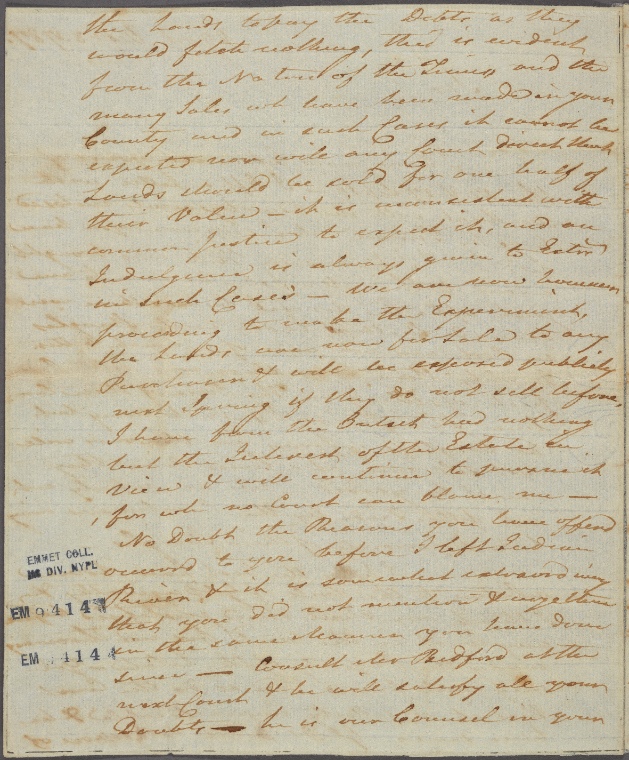 the Lands to pay the Debts as they
would fetch nothing, this is evident
from the Nature of the Times and the
many Sales wh have been made in your
County and in such Cases it cannot be
expected nor will any Court direct that
Lands should be sold for one half of
their Value – it is inconsistent with
common Justice to expect it, and an
Indulgence is always given to Extrs
in such Cases – We are now however
proceeding to make the Experiment,
the Lands are now for Sale to any
Purchaser & will be exposed publickly
next Spring if they do not sell before,
I have from the Outset had nothing
but the Interest of the Estate in
View & will continue to pursue it
, for wh no Court can blame me –
No Doubt the Reasons you have offered
occurred to you before I left Indian
River & it is somewhat extraordinary
that you did not mention & urge them
in the same Manner you have done
since – Consult Mr Bedford at the
next Court & he will satisfy all your
Doubts – he is our Counsel in your
EMMET COLL.
MS DIV. NYPL
EM 4144
EM 4144